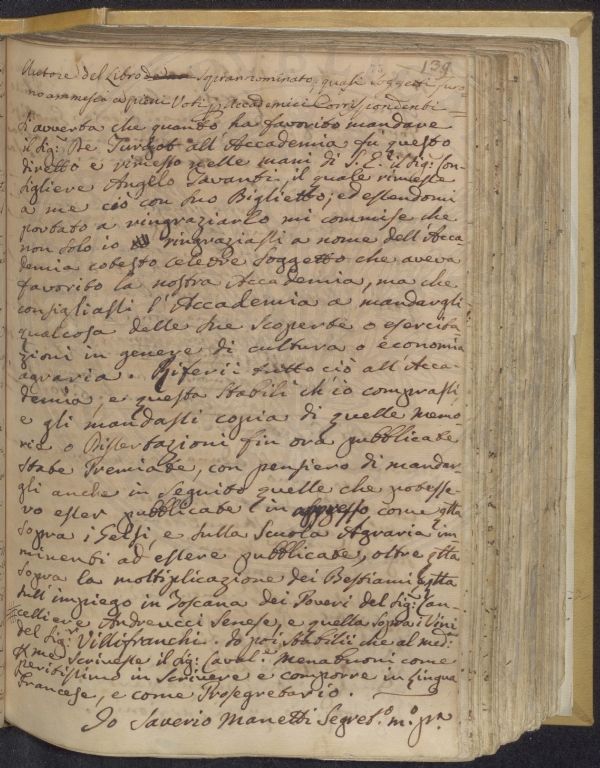 139
Autore del Libro sopranominato, quali Soggetti furo
no ammessi a pieni Voti p. Accademici Corrispondenti =
Si avverta che quanto ha favorito mandare
il Sig.r De Turgot all'Accademia fù questo
diretto e rimesso nelle mani di S. E. il Sig.r Con-
sigliere Angelo Tavanti, il quale rimesse
a me ciò con suo Biglietto; ed essendomi
portato a ringraziarlo mi commise che
non solo io ringraziassi a nome dell'Acca
demia cotesto celebre Soggetto che aveva
favorito la nostra Accademia, ma che
consigliassi l'Accademia a mandargli
qualcosa delle sue Scoperte o esercita
zioni in genere di cultura o economia
agraria. Riferii tutto ciò all'Acca-
demia, e questa stabilì ch'io comprassi
e gli mandassi copia di quelle Memo
rie o Dissertazioni fin ora pubblicate
state Premiate, con pensiero di mandar
gli anche in seguito quelle che potesse-
ro esser pubblicate in appresso come qtta
sopra i Gelsi, e sulla Scuola Agraria im
minenti ad essere pubblicate, oltre qtta
sopra la moltiplicazione dei Bestiami qtta
sull'impiego in Toscana dei Poveri del Sig.r Can-
celliere Andreucci Senese, e quella sopra i Vini
del Sig.r Villifranchi. Io poi stabilii che al med.mo
p me scrivesse il Sig.r Caval.e Menabuoni come
peritissimo in scrivere e comporre in lingua
Francese, e come Prosegretario.
Io Saverio Manetti Segret.o m.o pr.a